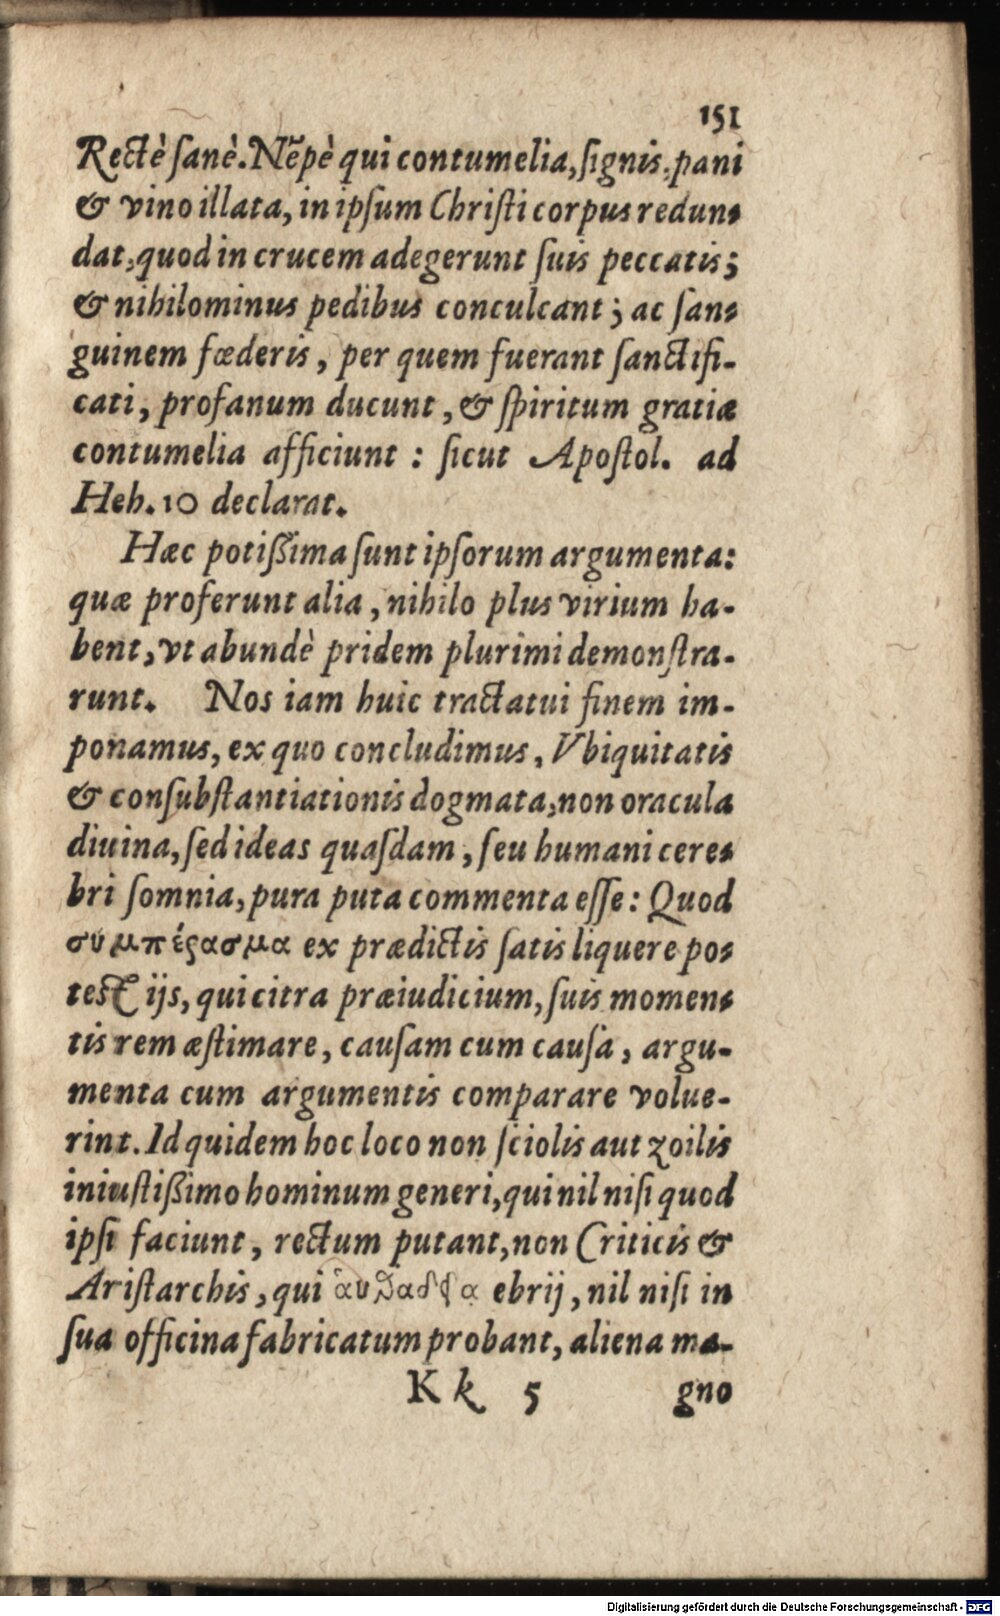 151
Rectè ſanè. Nẽpè qui contumelia, ſignis, pani
& vino illata, in ipſum Chriſti corpus redun-
dat, quod in crucem adegerunt ſuis peccatis;
& nihilominus pedibus conculcant; ac ſan-
guinem fœderis, per quem fuerant ſanctifi-
cati, profanum ducunt, & ſpiritum gratiæ
contumelia afficiunt: ſicut Apoſtol. ad
Heb. 10 declarat.
Hæc potißima ſunt ipſorum argumenta:
quæ proferunt alia, nihilo plus virium ha-
bent, vt abundè pridem plurimi demonſtra-
runt. Nos iam huic tractatui finem im-
ponamus, ex quo concludimus, Vbiquitatis
& conſubſtantiationis dogmata, non oracula
diuina, ſed ideas quaſdam, ſeu humani cere-
bri ſomnia, pura puta commenta eſſe: Quod
συμπέρασμα ex prædictis ſatis liquere po-
test ijs, qui citra præiudicium, ſuis momen-
tis rem æſtimare, cauſam cum cauſa, argu-
menta cum argumentis comparare volue-
rint. Id quidem hoc loco non ſciolis aut zoilis
iniuſtißimo hominum generi, qui nil niſi quod
ipſi faciunt, rectum putant, non Criticis &
Ariſtarchis, qui ἀυθαδεία ebrij, nil niſi in
ſua officina fabricatum probant, aliena ma-
K k 5 gno
Digitalisierung gefördert durch die Deutsche Forschungsgemeinschaft - DFG